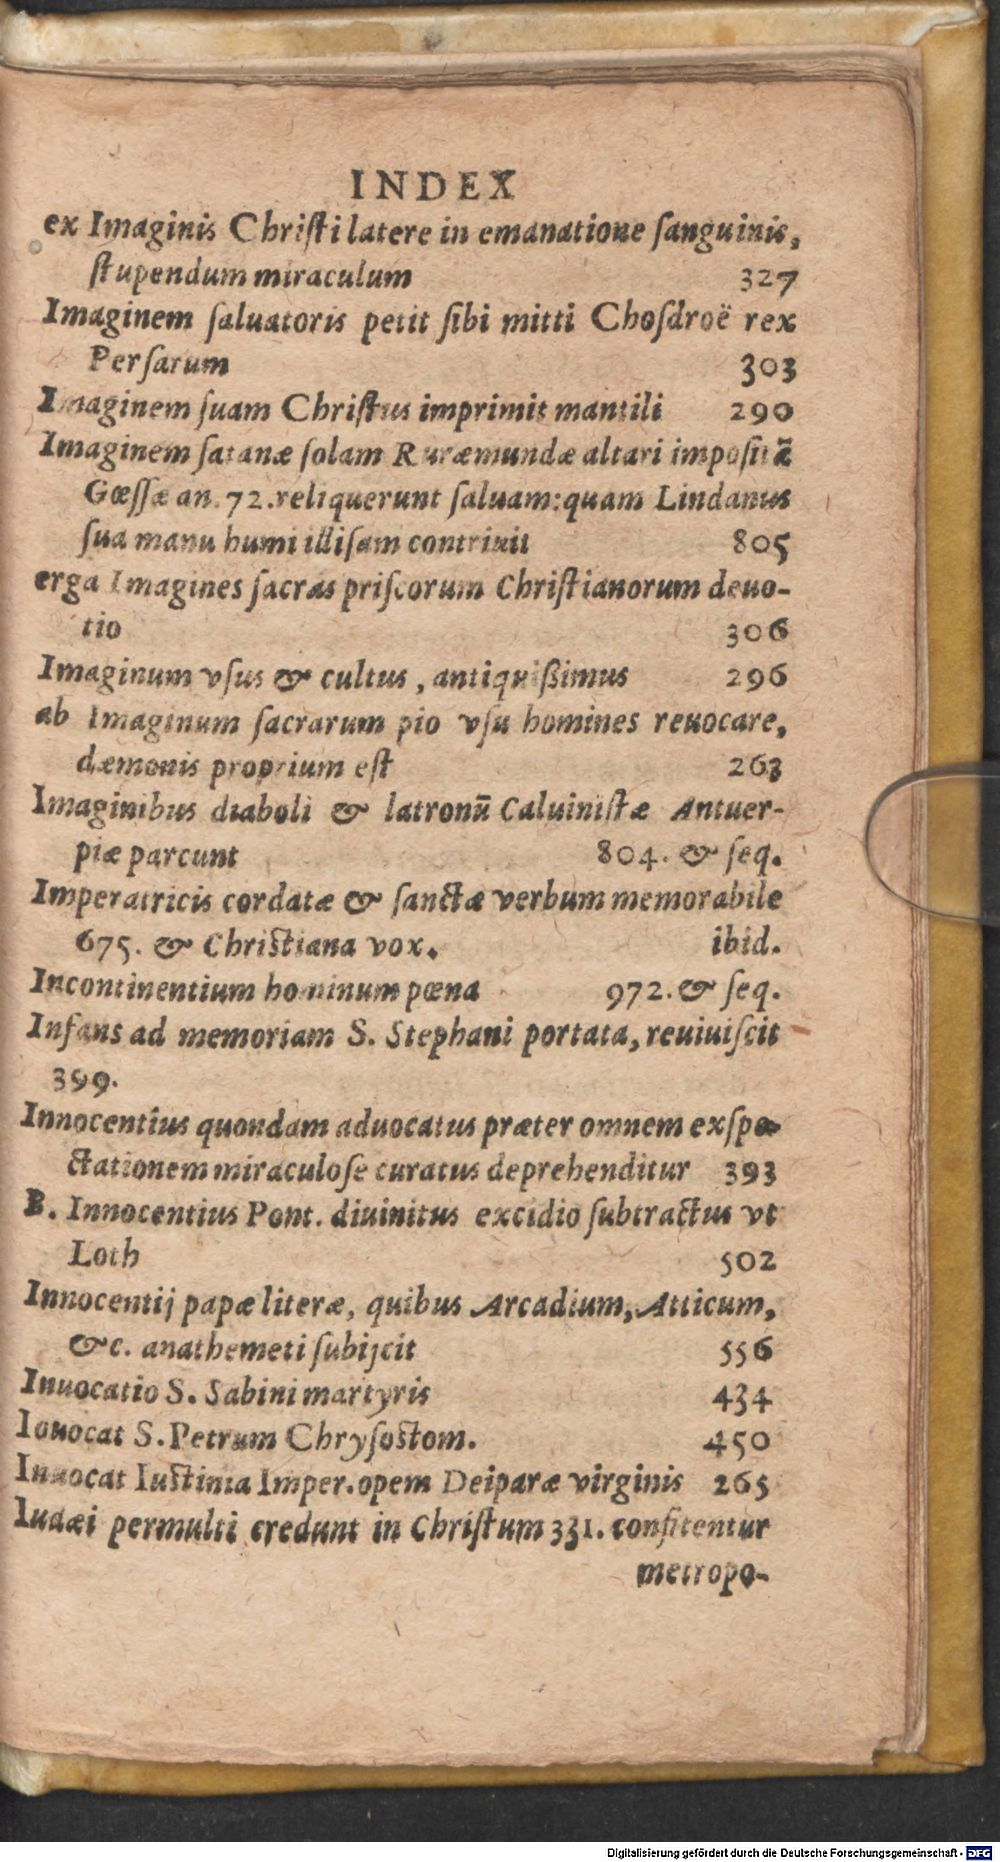 INDEX
ex Imaginis Chriſti latere in emanatione ſanguinis,
ſtupendum miraculum 327
Imaginem ſaluatoris petit ſibi mitti Choſdroë rex
Perſarum 303
Imaginem ſuam Chriſtus imprimit mantili 290
Imaginem ſatanæ ſolam Ruræmundæ altari impoſitã
Gœſſæ an. 72. reliquerunt ſaluam: quam Lindanus
ſua manu humi illiſam contriuit 805
erga Imagines ſacras priſcorum Chriſtianorum deuo-
tio 306
Imaginum vſus & cultus, antiquißimus 296
ab Imaginum ſacrarum pio vſu homines reuocare,
dæmonis proprium eſt 263
Imaginibus diaboli & latronũ Caluiniſtæ Antuer-
piæ parcunt 804. & ſeq.
Imperatricis cordatæ & ſanctæ verbum memorabile
675. & Chriſtiana vox. ibid.
Incontinentium hominum pœna 972. & ſeq.
Infans ad memoriam S. Stephani portata, reuiuiſcit
399.
Innocentius quondam aduocatus præter omnem exſpe-
ctationem miraculoſe curatus deprehenditur 393
B. Innocentius Pont. diuinitus excidio ſubtractus vt
Loth 502
Innocentij papæ literæ, quibus Arcadium, Atticum,
&c. anathemeti ſubijcit 556
Inuocatio S. Sabini martyris 434
Iouocat S. Petrum Chryſoſtom. 450
Inuocat Iuſtinia Imper. opem Deiparæ virginis 265
Iudæi permulti credunt in Chriſtum 331. confitentur
metropo-
Digitalisierung gefördert durch die Deutsche Forschungsgemeinschaft - DFG